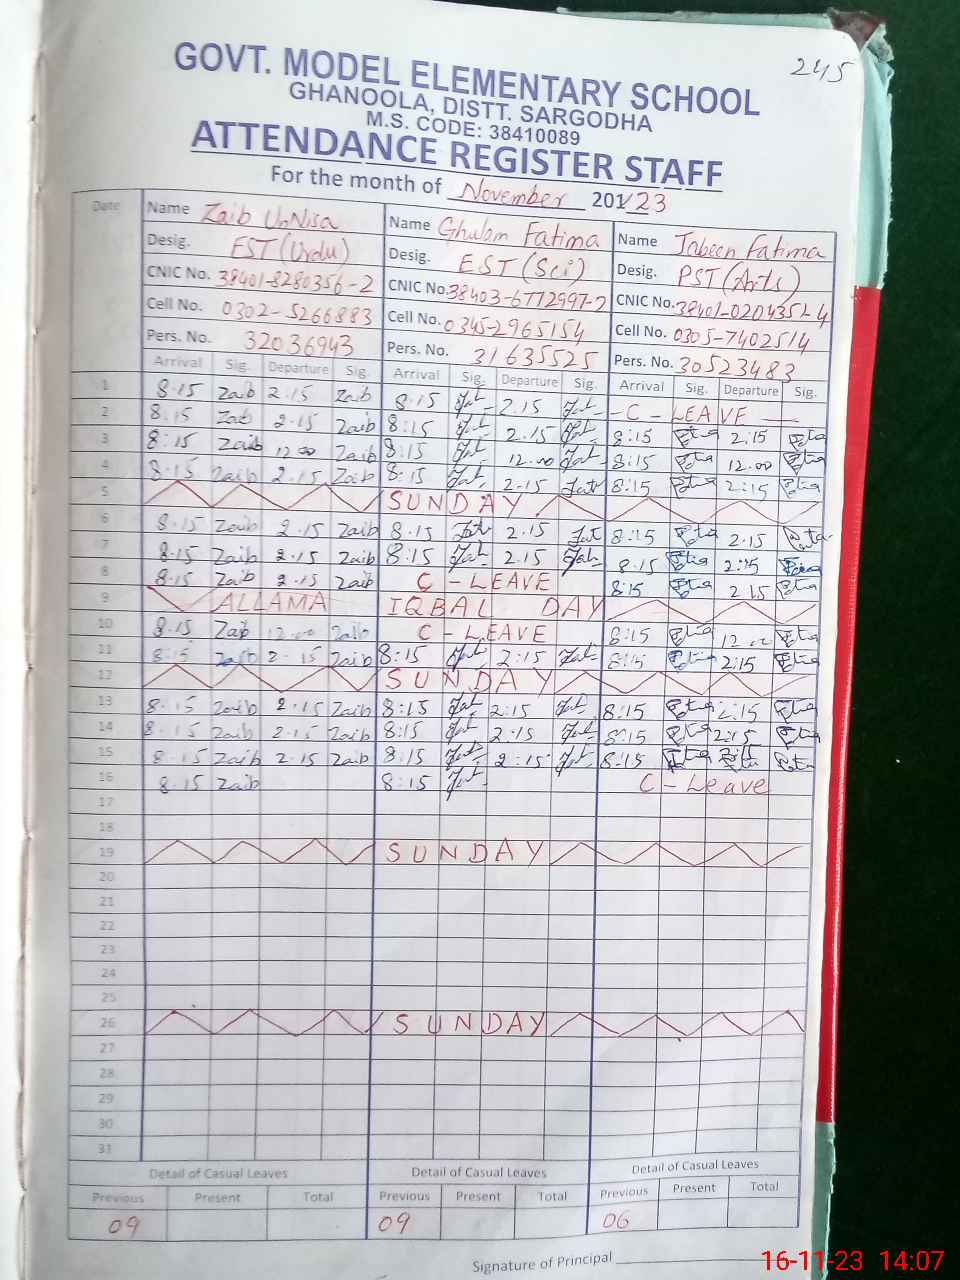 245
GOVT. MODEL ELEMENTARY SCHOOL
GHANOOLA, DISTT. SARGODHA
M.S. CODE: 38410089
ATTENDANCE REGISTER STAFF
For the month of November 201/23
Date Name Zaib UnNisa Name Fatima Name Fatima
Desig. EST (Urdu) Desig. EST (Sci) Desig. PST (Arts)
CNIC No. 38401-8280356-2 CNIC No. 38403-6772997-2 CNIC No. 38401-0204351-4
Cell No. 0302-5266883 Cell No. 0345-2965154 Cell No. 0305-7402514
Pers. No. 32036943 Pers. No. 31635525 Pers. No. 30523483
Arrival Sig. Departure Sig. Arrival Sig. Departure Sig. Arrival Sig. Departure Sig.
1 8.15 Zaib 2.15 Zaib 8.15 Fat 2.15 Fat - C - LEAVE
2 8.15 Zaib 2.15 Zaib 8:15 Fat 2.15 Fat 8:15 2:15
3 8:15 Zaib 12.00 Zaib 8:15 Fat 12.00 Fat 8:15 12.00
4 8.15 Zaib 2.15 Zaib 8:15 Fat 2.15 Fat 8:15 2:15
5 SUNDAY
6 8.15 Zaib 2.15 Zaib 8.15 Fat 2.15 Fat 8:15 2.15
7 8.15 Zaib 2.15 Zaib 8:15 Fat 2.15 Fat 8.15 2:15
8 8.15 Zaib 2.15 Zaib C - LEAVE 8:15 2.15
9 ALLAMA IQBAL DAY
10 8.15 Zaib 12.00 Zaib C - LEAVE 8:15 12.00
11 8:15 Zaib 2.15 Zaib 8:15 Fat 2:15 Fat 8:15 2:15
12 SUNDAY
13 8.15 Zaib 2.15 Zaib 8:15 Fat 2:15 Fat 8:15 2:15
14 8.15 Zaib 2.15 Zaib 8:15 Fat 2:15 Fat 8:15 2:15
15 8.15 Zaib 2.15 Zaib 8:15 Fat 2:15 Fat 8:15
16 8.15 Zaib 8:15 Fat C - Leave
17
18
19 SUNDAY
20
21
22
23
24
25
26 SUNDAY
27
28
29
30
31
Detail of Casual Leaves Detail of Casual Leaves Detail of Casual Leaves
Previous Present Total Previous Present Total Previous Present Total
09 09 06
Signature of Principal
16-11-23 14:07